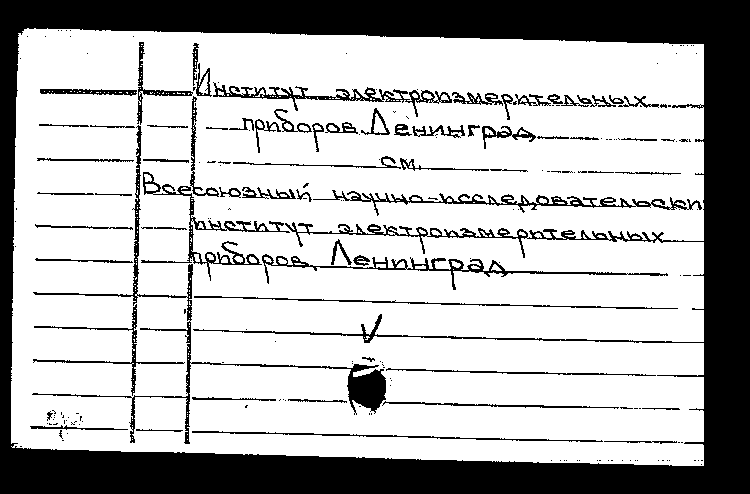 Институт электроизмерительных
приборов. Ленинград
см.
Всесоюзный научно-исследовательский
институт электроизмерительных
приборов. Ленинград